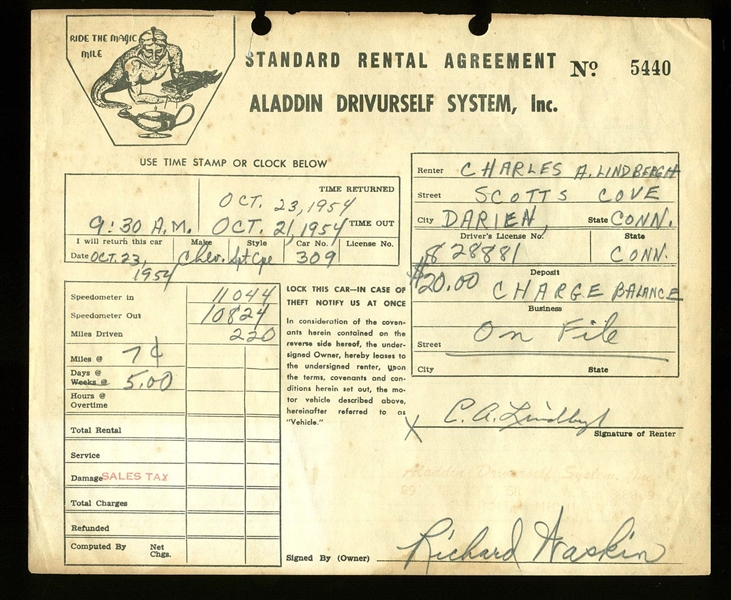 RIDE THE MAGIC
MILE
STANDARD RENTAL AGREEMENT No 5440
ALADDIN DRIVURSELF SYSTEM, Inc.
USE TIME STAMP OR CLOCK BELOW
TIME RETURNED
OCT. 23, 1954
9:30 A.M. OCT. 21, 1954 TIME OUT
I will return this car Make Style Car No. License No.
Date OCT. 23, 1954 Chev. Spt Cpe 309
Renter CHARLES A. LINDBERGH
Street SCOTTS COVE
City DARIEN, State CONN.
Driver's License No. State
828881 CONN.
Deposit
$20.00 CHARGE BALANCE
Business
On File
Street
City State
Speedometer in 11044
Speedometer Out 10824
Miles Driven 220
Miles @ 7¢
Days @
Weeks @ 5.00
Hours @
Overtime
Total Rental
Service
Damage SALES TAX
Total Charges
Refunded
Computed By Net
Chgs.
LOCK THIS CAR—IN CASE OF
THEFT NOTIFY US AT ONCE
In consideration of the coven-
ants herein contained on the
reverse side hereof, the under-
signed Owner, hereby leases to
the undersigned renter, upon
the terms, covenants and con-
ditions herein set out, the mo-
tor vehicle described above,
hereinafter referred to as
"Vehicle."
X C. A. Lindbergh
Signature of Renter
Aladdin Drivurself System, Inc.
Signed By (Owner) Richard Waskin